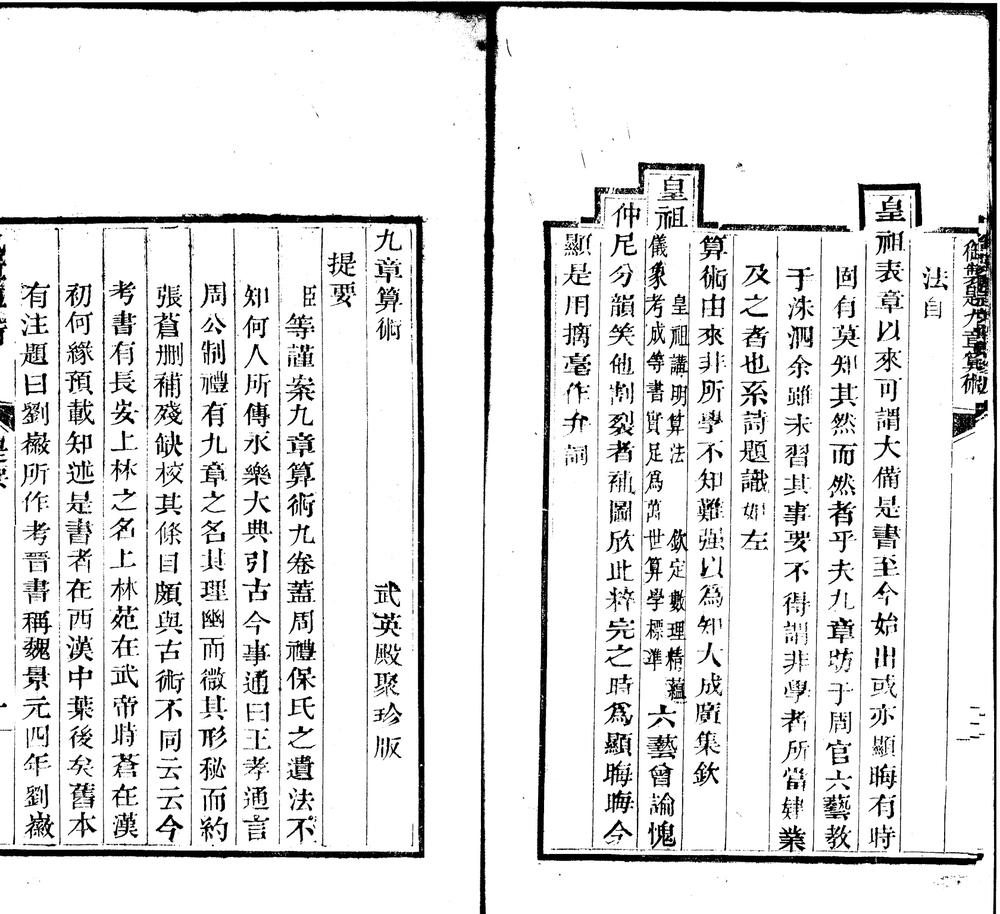 御製題九章算術
法自
皇祖表章以來可謂大備是書至今始出或亦顯晦有時
固有莫知其然而然者乎夫九章昉于周官六藝教
于洙泗余雖未習其事要不得謂非學者所當肄業
及之者也系詩題識如左
算術由來非所學不知難强以爲知大成廣集欽
皇祖
皇祖講明算法 欽定數理精蘊
儀象考成等書實足爲萬世算學標準
六藝曾論愧
仲尼分韻笑他割裂者補圖欣此粹完之時爲顯晦晦今
顯是用摛毫作弁詞
九章算術
武英殿聚珍版
提要
臣等謹案九章算術九卷蓋周禮保氏之遺法不
知何人所傳永樂大典引古今事通曰王孝通言
周公制禮有九章之名其理幽而微其形秘而約
張蒼刪補殘缺校其條目頗與古術不同云云今
考書有長安上林之名上林苑在武帝時蒼在漢
初何緣預載知述是書者在西漢中葉後矣舊本
有注題曰劉徽所作考晉書稱魏景元四年劉徽